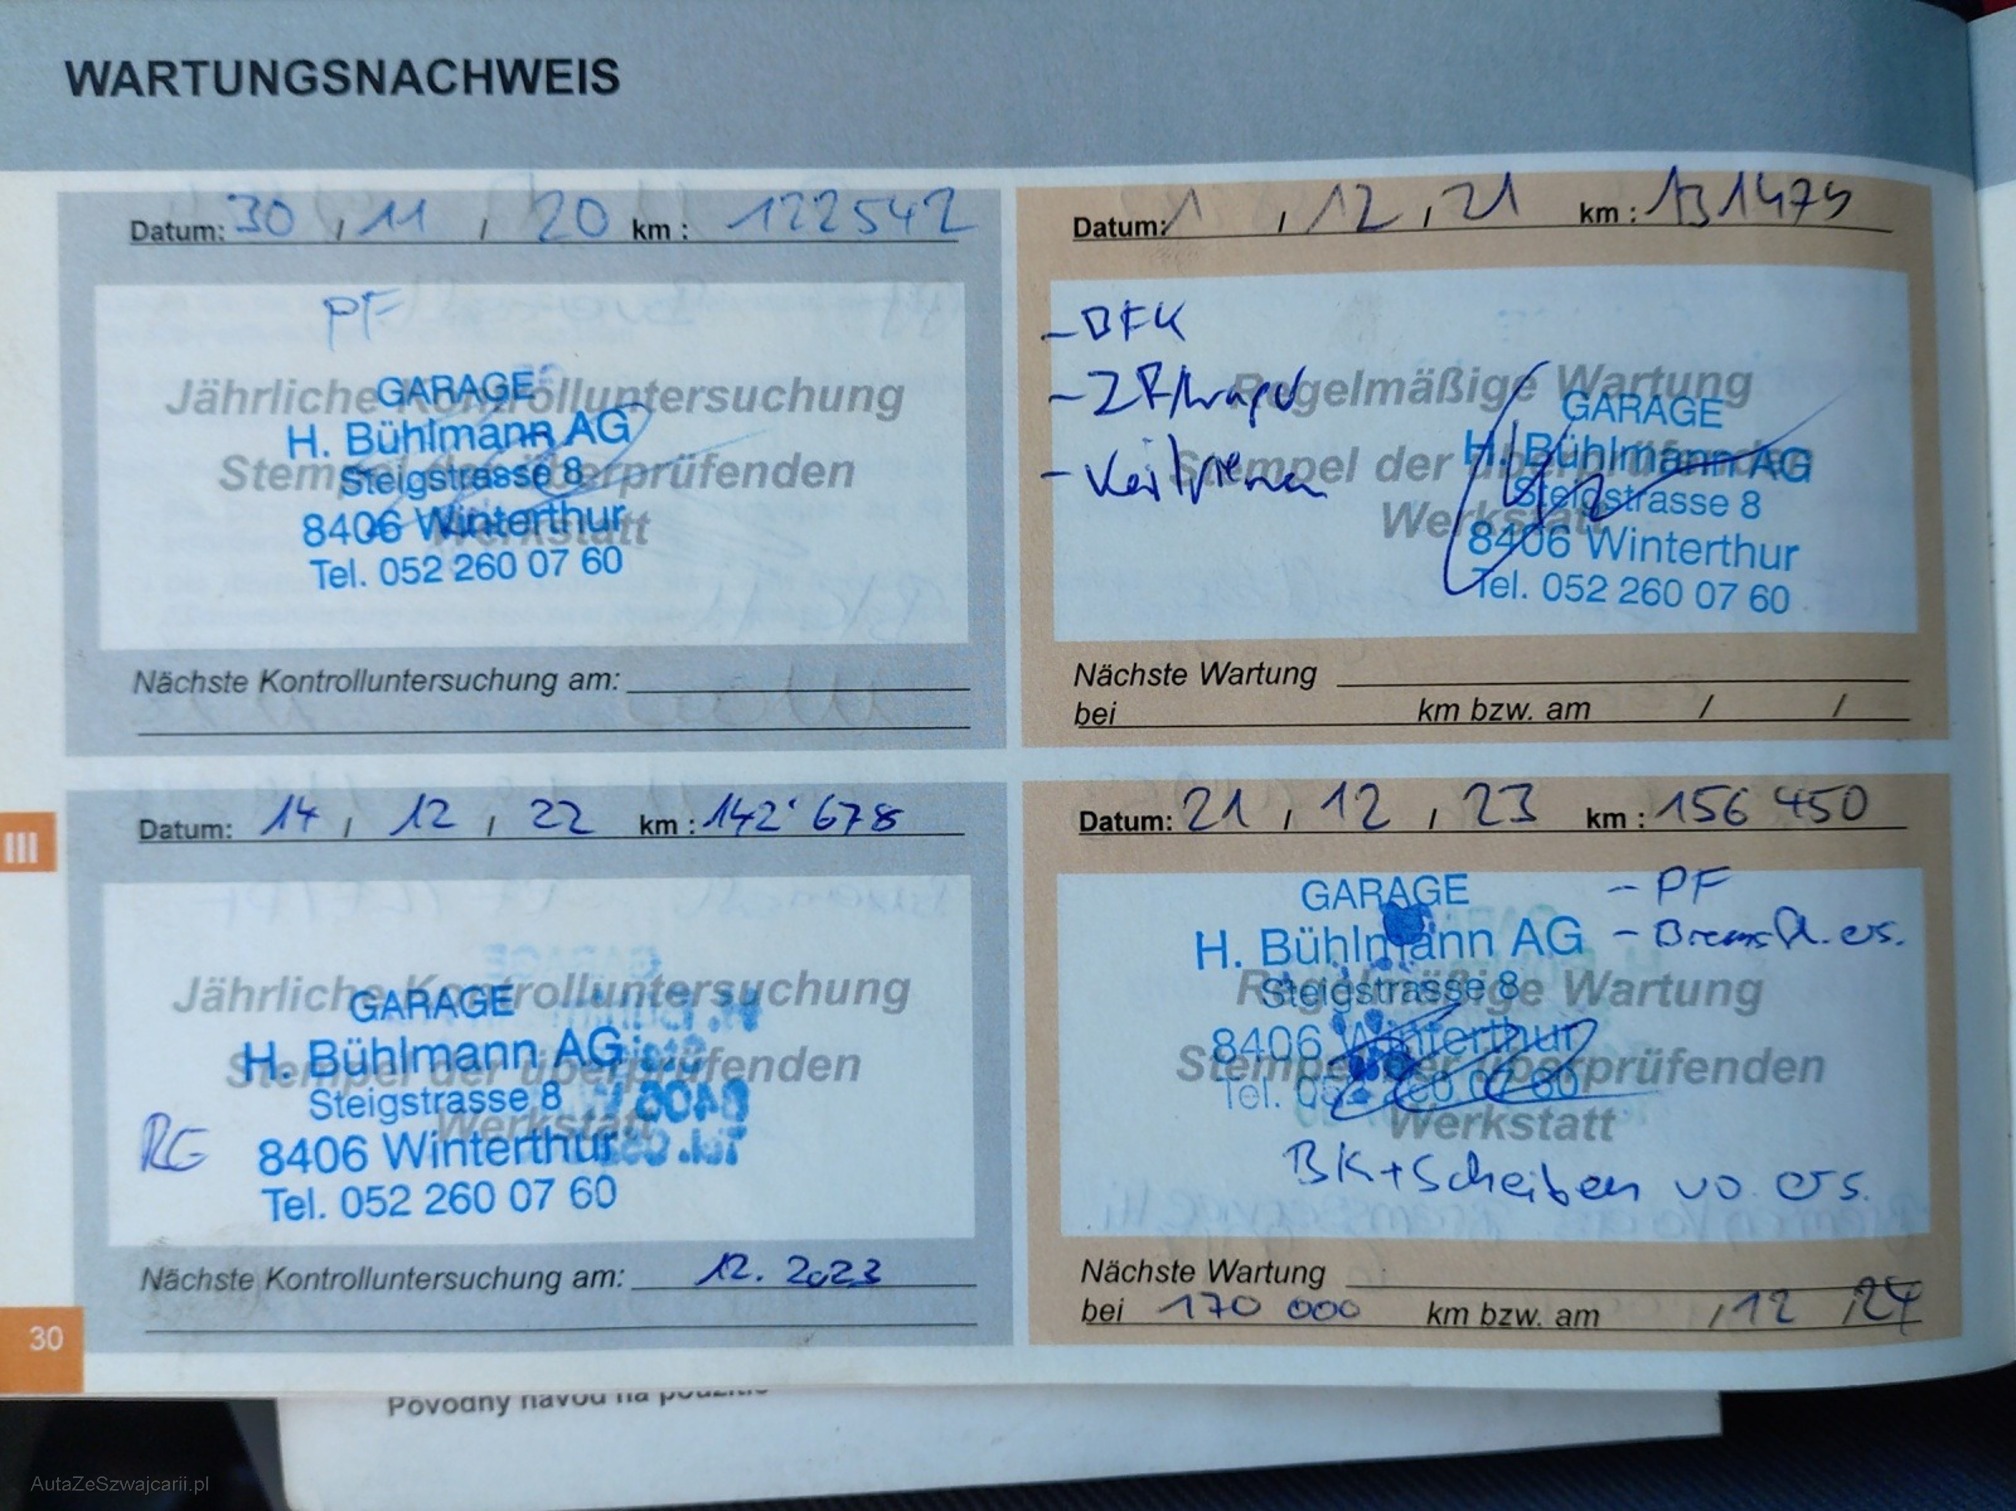 WARTUNGSNACHWEIS
Datum: 30 , 11 , 20 km : 122542
PF
Jährliche Kontrolluntersuchung
Stempel der überprüfenden
Werkstatt
GARAGE
H. Bühlmann AG
Steigstrasse 8
8406 Winterthur
Tel. 052 260 07 60
Nächste Kontrolluntersuchung am:
Datum: 1 , 12 , 21 km : 131479
- BFK
- Keilriemen
Regelmäßige Wartung
Stempel der überprüfenden
Werkstatt
GARAGE
H. Bühlmann AG
Steigstrasse 8
8406 Winterthur
Tel. 052 260 07 60
Nächste Wartung
bei km bzw. am / /
III
Datum: 14 , 12 , 22 km : 142'678
Jährliche Kontrolluntersuchung
Stempel der überprüfenden
Werkstatt
GARAGE
H. Bühlmann AG
Steigstrasse 8
8406 Winterthur
Tel. 052 260 07 60
RG
Nächste Kontrolluntersuchung am: 12. 2023
Datum: 21 , 12 , 23 km : 156 450
- PF
- Bremsfl. ers.
GARAGE
H. Bühlmann AG
Steigstrasse 8
8406 Winterthur
Tel. 052 260 07 60
Regelmäßige Wartung
Stempel der überprüfenden
Werkstatt
BK + Scheiben vo. ers.
Nächste Wartung
bei 170 000 km bzw. am , 12 , 24
30
Pôvodný návod na použitie
AutaZeSzwajcarii.pl